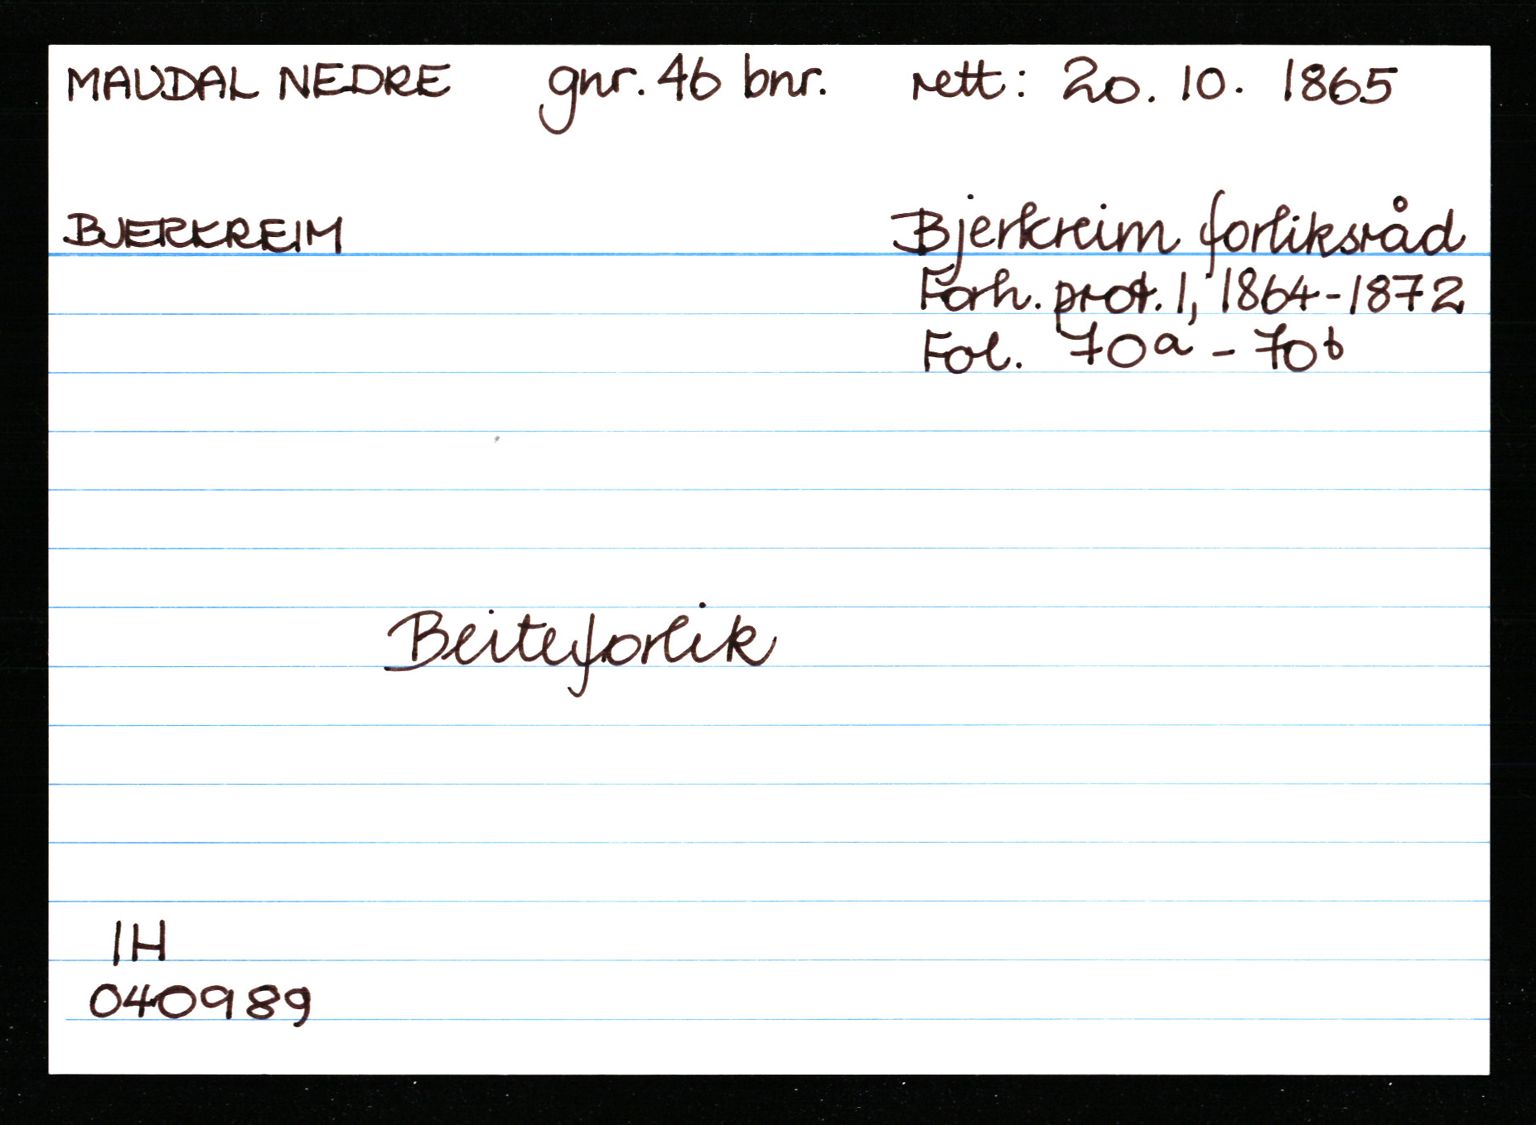 MAUDAL NEDRE gnr. 46 bnr. rett: 20. 10. 1865
BJERKREIM Bjerkreim forliksråd
Forh. prot. 1, 1864-1872
Fol. 70a - 70b
Beiteforlik
IH
040989